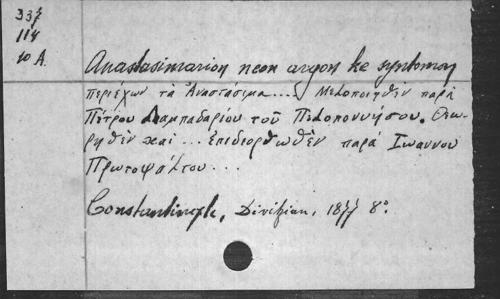 337
114
10 A.
Anastasimarion neon argon ke syntomon
περιέχων τὰ Ἀναστάσιμα.... Μελοποιηθὲν παρὰ
Πέτρου Λαμπαδαρίου τοῦ Πελοποννήσου. Θεω-
ρηθὲν καὶ ... ἐπιδιορθωθὲν παρὰ Ἰωάννου
Πρωτοψάλτου...
Constantinople, Divitzian, 1877 8°.